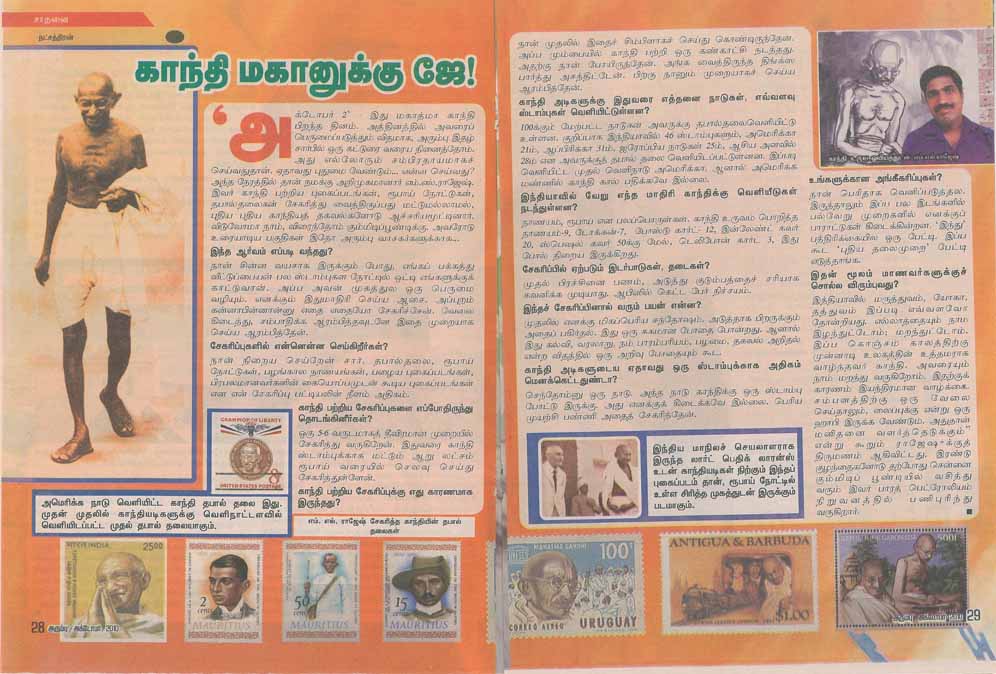 சாதனை
நட்சத்திரன்
காந்தி மகானுக்கு ஜே!
‘அ
க்டோபர் 2’ இது மகாத்மா காந்தி
பிறந்த தினம். அத்தினத்தில் அவரைப்
பெருமைப்படுத்தும் விதமாக, அரும்பு இதழ்
சார்பில் ஒரு கட்டுரை வரைய நினைத்தோம்.
அது எல்லோரும் சம்பிரதாயமாகச்
செய்வதுதான். ஏதாவது புதுமை வேண்டும்... என்ன செய்வது?
அந்த நேரத்தில் தான் நமக்கு அறிமுகமானார் எம்.எஸ்.ராஜேஷ்.
இவர் காந்தி பற்றிய புகைப்படங்கள், ரூபாய் நோட்டுகள்,
தபால்தலைகள் சேகரித்து வைத்திருப்பது மட்டுமல்லாமல்,
புதிய புதிய காந்தியத் தகவல்களோடு ஆச்சரியமூட்டினார்.
விடுவோமா நாம், விரைந்தோம் கும்மிடிப்பூண்டிக்கு. அவரோடு
உரையாடிய பகுதிகள் இதோ அரும்பு வாசகர்களுக்காக...
இந்த ஆர்வம் எப்படி வந்தது?
நான் சின்ன வயசாக இருக்கும் போது, எங்கப் பக்கத்து
வீட்டுப்பையன் பல ஸ்டாம்புகள நோட்டுல ஒட்டி எங்களுக்குக்
காட்டுவான். அப்ப அவன் முகத்துல ஒரு பெருமை
வழியும். எனக்கும் இதுமாதிரி செய்ய ஆசை. அப்புறம்
கன்னாபின்னான்னு எதை எதையோ சேகரிச்சேன். வேலை
கிடைத்து, சம்பாதிக்க ஆரம்பித்தவுடனே இதை முறையாகச்
செய்ய ஆரம்பித்தேன்.
சேகரிப்புகளில் என்னென்ன செய்கிறீர்கள்?
நான் நிறைய செய்றேன் சார். தபால்தலை, ரூபாய்
நோட்டுகள், பழங்கால நாணயங்கள், பழைய புகைப்படங்கள்,
பிரபலமானவர்களின் கையொப்பமுடன் கூடிய புகைப்படங்கள்
என என் சேகரிப்பு பட்டியலின் நீளம் அதிகம்.
காந்தி பற்றிய சேகரிப்புகளை எப்போதிருந்து
தொடங்கினீர்கள்?
ஒரு 5-6 வருடமாகத் தீவிரமான முறையில்
சேகரித்து வருகிறேன். இதுவரை காந்தி
ஸ்டாம்புக்காக மட்டும் ஆறு லட்சம்
ரூபாய் வரையில் செலவு செய்து
சேகரித்துள்ளேன்.
காந்தி பற்றிய சேகரிப்புக்கு எது காரணமாக
இருந்தது?
CHAMPION OF LIBERTY
8¢
UNITED STATES POSTAGE
அமெரிக்க நாடு வெளியிட்ட காந்தி தபால் தலை இது.
முதன் முதலில் காந்தியடிகளுக்கு வெளிநாட்டளவில்
வெளியிடப்பட்ட முதல் தபால் தலையாகும்.
எம். எஸ். ராஜேஷ் சேகரித்த காந்தியின் தபால்
தலைகள்
INDIA 25.00
2 cents MAURITIUS
50 cents MAURITIUS
15 cents MAURITIUS
28 அரும்பு / அக்டோபர் / 2010
நான் முதலில் இதைச் சிம்பிளாகச் செய்து கொண்டிருந்தேன்.
அப்ப மும்பையில் காந்தி பற்றி ஒரு கண்காட்சி நடந்தது.
அதற்கு நான் போயிருந்தேன். அங்க வைத்திருந்த திங்க்ஸ்
பார்த்து அசந்திட்டேன். பிறகு நானும் முறையாகச் செய்ய
ஆரம்பித்தேன்.
காந்தி அடிகளுக்கு இதுவரை எத்தனை நாடுகள், எவ்வளவு
ஸ்டாம்புகள் வெளியிட்டுள்ளன?
100க்கும் மேற்பட்ட நாடுகள் அவருக்கு தபால்தலைவெளியிட்டு
உள்ளன. குறிப்பாக இந்தியாவில் 46 ஸ்டாம்புகளும், அமெரிக்கா
21ம், ஆப்பிரிக்கா 31ம், ஐரோப்பிய நாடுகள் 25ம், ஆசிய அளவில்
28ம் என அவருக்குத் தபால் தலை வெளியிடப்பட்டுள்ளன. இப்படி
வெளியிட்ட முதல் வெளிநாடு அமெரிக்கா. ஆனால் அமெரிக்க
மண்ணில் காந்தி கால் பதிக்கவே இல்லை.
இந்தியாவில் வேறு எந்த மாதிரி காந்திக்கு வெளியீடுகள்
நடந்துள்ளன?
நாணயம், ரூபாய் என பலப்பொருள்கள். காந்தி உருவம் பொறித்த
நாணயம்-9, டோக்கன்-7, போஸ்டு கார்ட்- 12, இன்லேண்ட் கவர்
20, ஸ்பெஷல் கவர் 50க்கு மேல், டெலிபோன் கார்ட் 3, இது
போல் நிறைய இருக்கிறது.
சேகரிப்பில் ஏற்படும் இடர்பாடுகள், தடைகள்?
முதல் பிரச்சினை பணம், அடுத்து குடும்பத்தைச் சரியாக
கவனிக்க முடியாது. ஆபிஸில் கெட்ட பேர் நிச்சயம்.
இந்தச் சேகரிப்பினால் வரும் பயன் என்ன?
முதலில் எனக்கு மிகப்பெரிய சந்தோஷம். அடுத்தாக பிறருக்கும்
அதைப் பகிர்தல். இது ஒரு சுகமான போதை போன்றது. ஆனால்
இது கல்வி, வரலாறு, நம் பாரம்பரியம், பழமை, தகவல் அறிதல்
என்ற விதத்தில் ஒரு அறிவு போதையும் கூட..
காந்தி அடிகளுடைய ஏதாவது ஒரு ஸ்டாம்புக்காக அதிகம்
மெனக்கெட்டதுண்டா?
செந்தோம்னு ஒரு நாடு. அந்த நாடு காந்திக்கு ஒரு ஸ்டாம்பு
போட்டு இருக்கு. அது எனக்குக் கிடைக்கவே இல்லை. பெரிய
முயற்சி பண்ணி அதைச் சேகரித்தேன்.
இந்திய மாநிலச் செயலாளராக
இருந்த லார்ட் பெதிக் லாரன்ஸ்
உடன் காந்தியடிகள் நிற்கும் இந்தப்
புகைப்படம் தான், ரூபாய் நோட்டில்
உள்ள சிரித்த முகத்துடன் இருக்கும்
படமாகும்.
உங்களுக்கான அங்கீகரிப்புகள்?
நான் பெரிதாக வெளிப்படுத்தல.
இருந்தாலும் இப்ப பல இடங்களில்
பல்வேறு முறைகளில் எனக்குப்
பாராட்டுகள் கிடைக்கின்றன. ‘இந்து’
பத்திரிக்கையில ஒரு பேட்டி. இப்ப
கூட ‘புதிய தலைமுறை’ பேட்டி
எடுத்தாங்க.
இதன் மூலம் மாணவர்களுக்குச்
சொல்ல விரும்புவது?
இந்தியாவில் மருத்துவம், யோகா,
தத்துவம் இப்படி எவ்வளவோ
தோன்றியது. எல்லாத்தையும் நாம
இழந்துட்டோம்; மறந்துட்டோம்.
இப்ப கொஞ்சம் காலத்திற்கு
முன்னாடி உலகத்தின் உத்தமராக
வாழ்ந்தவர் காந்தி. அவரையும்
நாம் மறந்து வருகிறோம். இதற்குக்
காரணம் இயந்திரமான வாழ்க்கை.
சம்பளத்திற்கு ஒரு வேலை
செய்தாலும், லைப்புக்கு என்று ஒரு
ஹாபி இருக்க வேண்டும். அதுதான்
மனிதனை வளர்த்தெடுக்கும்”
என்று கூறும் ராஜேஷ்க்குத்
திருமணம் ஆகிவிட்டது. இரண்டு
குழந்தைகளோடு தற்போது சென்னை
கும்மிடிப் பூண்டியில் வசித்து
வரும் இவர் பாரத் பெட்ரோலியம்
நிறுவனத்தில் பணிபுரிந்து
வருகிறார்.
MAHATMA GANDHI 100c
CORREO AEREO URUGUAY
ANTIGUA & BARBUDA
$1.00
500F
29